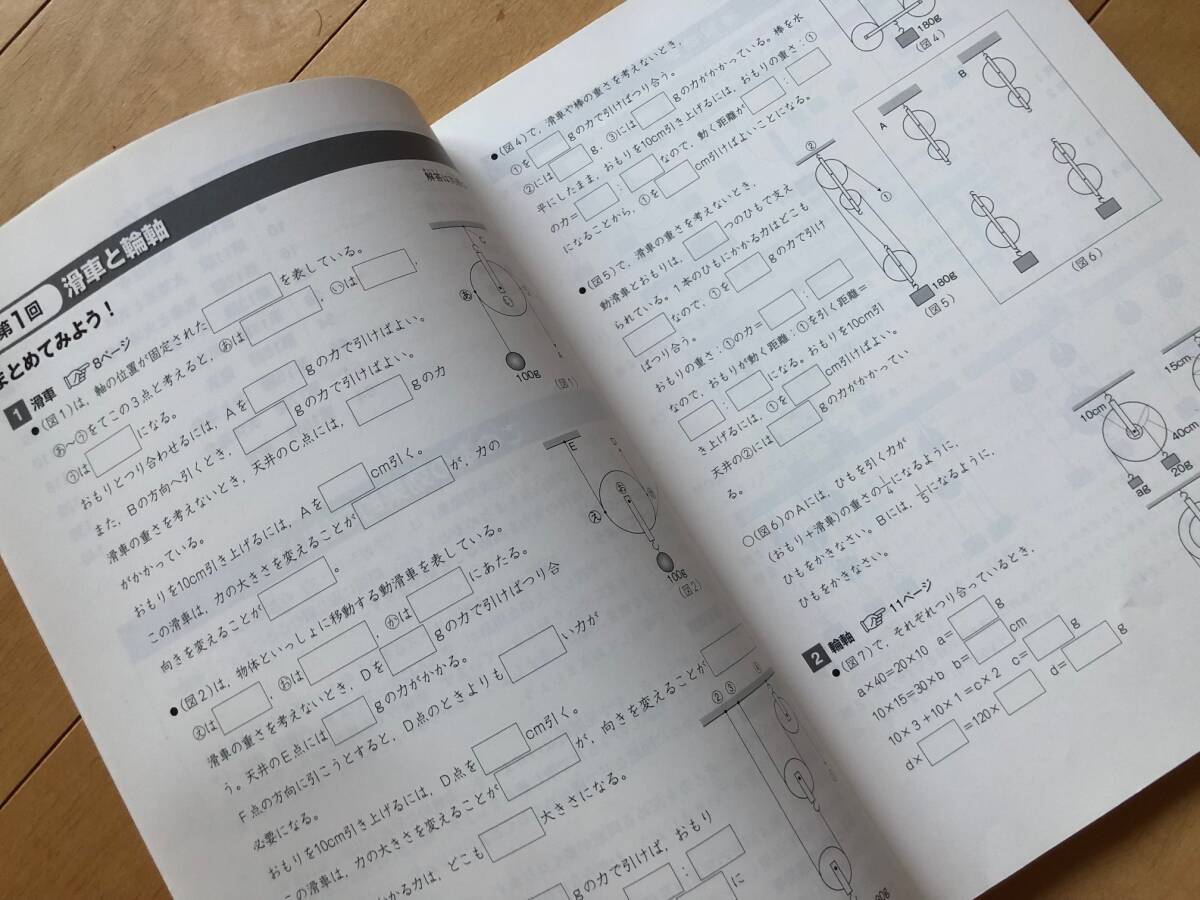 第1回 滑車と輪軸
まとめてみよう！
1 滑車 8ページ
●(図1)は，軸の位置が固定された を表している。
あ〜うをてこの3点と考えると，あは ，いは ，
うは になる。
おもりとつり合わせるには，Aを gの力で引けばよい。
また，Bの方向へ引くとき， gの力で引けばよい。
滑車の重さを考えないとき，天井のC点には， gの力
がかかっている。
おもりを10cm引き上げるには，Aを cm引く。
この滑車は，力の大きさを変えることが が，力の
向きを変えることが 。
●(図2)は，物体といっしょに移動する動滑車を表している。
えは ，おは ，かは にあたる。
滑車の重さを考えないとき，Dを gの力で引けばつり合
う。天井のE点には gの力がかかる。
F点の方向に引こうとすると，D点のときよりも い力が
必要になる。
おもりを10cm引き上げるには，D点を cm引く。
この滑車は，力の大きさを変えることが が，向きを変えることが
かかる力は，どこも 大きさになる。
gの力で引けば，おもり
：
に
C
あ
い
100g
(図1)
E
お
え
100g
(図2)
② ③
●(図4)で，滑車や棒の重さを考えないとき，
①を gの力で引けばつり合う。
②には g，③には gの力がかかっている。棒を水
平にしたまま，おもりを10cm引き上げるには，おもりの重さ：①
の力＝ ： なので，動く距離が ：
になることから，①を cm引けばよいことになる。
180g
(図4)
●(図5)で，滑車の重さを考えないとき，
動滑車とおもりは， つのひもで支え
られている。1本のひもにかかる力はどこも
なので，①を gの力で引け
ばつり合う。
おもりの重さ：①の力＝ ：
なので，おもりが動く距離：①を引く距離＝
： になる。おもりを10cm引
き上げるには，①を cm引けばよい。
天井の②には gの力がかかってい
る。
②
①
180g
(図5)
A
B
(図6)
○(図6)のAには，ひもを引く力が
(おもり＋滑車)の重さの1/4になるように，
ひもをかきなさい。Bには，1/5になるように，
ひもをかきなさい。
2 輪軸 11ページ
●(図7)で，それぞれつり合っているとき，
a×40=20×10 a= g
10×15=30×b b= cm
10×3+10×1=c×2 c= g
d× =120× d= g
10cm
40cm
ag
20g
15cm